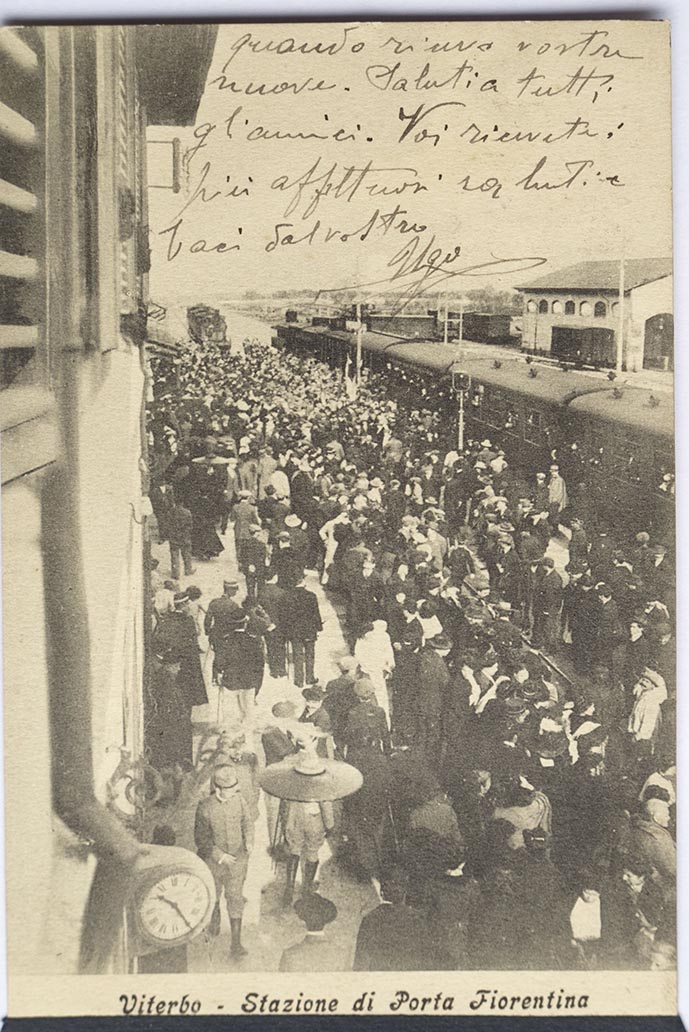 quando riuvo vostre
nuove. Saluti a tutti
gli amici. Voi ricevete i
più affettuosi saluti e
baci dal vostro
Ugo
Viterbo - Stazione di Porta Fiorentina